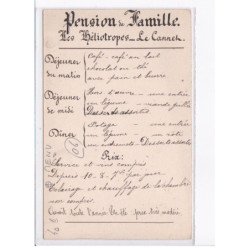 Pension de Famille.
Les Héliotropes - Le Cannet.
Déjeuner
du matin
Café - café au lait
chocolat ou thé
avec pain et beurre
Déjeuner
de midi
Hors d'œuvre - une entrée
un légume - viande grillée
Desserts assortis
Dîner
Potage - une entrée
un légume - un rôti
un entremets - Desserts assortis
Prix:
Service et vin compris
Depuis 10 - 8 - 7 frs par jour
Eclairage et chauffage de la chambre
non compris.